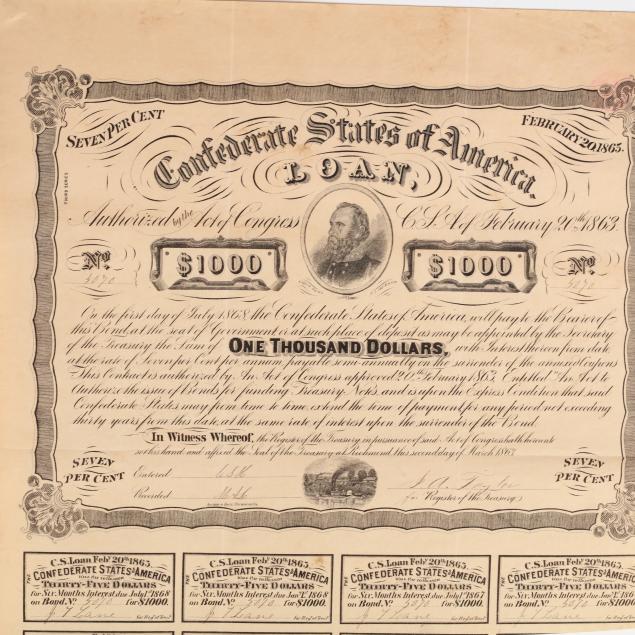 SEVEN PER CENT
FEBRUARY 20, 1863.
THIRD SERIES
Confederate States of America
LOAN,
Authorized by the Act of Congress C.S.A of February 20th 1863
No. $1000 $1000 No.
5070 5070
On the first day of July 1868 the Confederate States of America, will pay to the Bearer of
this Bond, at the seat of Government or at such place of deposit as may be appointed by the Secretary
of the Treasury the Sum of ONE THOUSAND DOLLARS, with Interest thereon from date
at the rate of Seven per Cent per annum payable semi-annually on the surrender of the annexed Coupons
This Contract is authorized by An Act of Congress approved 20th February 1863, Entitled "An Act to
Authorize the issue of Bonds for funding Treasury Notes, and is upon the Express Condition that said
Confederate States may from time to time extend the term of payment for any period not exceeding
thirty years from this date, at the same rate of interest upon the surrender of the Bond
In Witness Whereof, the Register of the Treasury in pursuance of said Act of Congress hath hereunto
set his hand and affixed the Seal of the Treasury at Richmond this second day of March 1863
SEVEN PER CENT
SEVEN PER CENT
Entered
Recorded
for Register of the Treasury
C.S. Loan Feby. 20th 1863.
THE CONFEDERATE STATES OF AMERICA
THIRTY-FIVE DOLLARS
for Six Months Interest due July 1st 1868
on Bond No. 5070 for $1000.
C.S. Loan Feby. 20th 1863.
THE CONFEDERATE STATES OF AMERICA
THIRTY-FIVE DOLLARS
for Six Months Interest due Jany. 1st 1868
on Bond No. 5070 for $1000.
for Reg. of Treasy.
C.S. Loan Feby. 20th 1863.
THE CONFEDERATE STATES OF AMERICA
THIRTY-FIVE DOLLARS
for Six Months Interest due July 1st 1867
on Bond No. 5070 for $1000.
for Reg. of Treasy.
C.S. Loan Feby. 20th 1863.
THE CONFEDERATE STATES OF AMERICA
THIRTY-FIVE DOLLARS
for Six Months Interest due Jany.
on Bond No. 5070 for $1000.